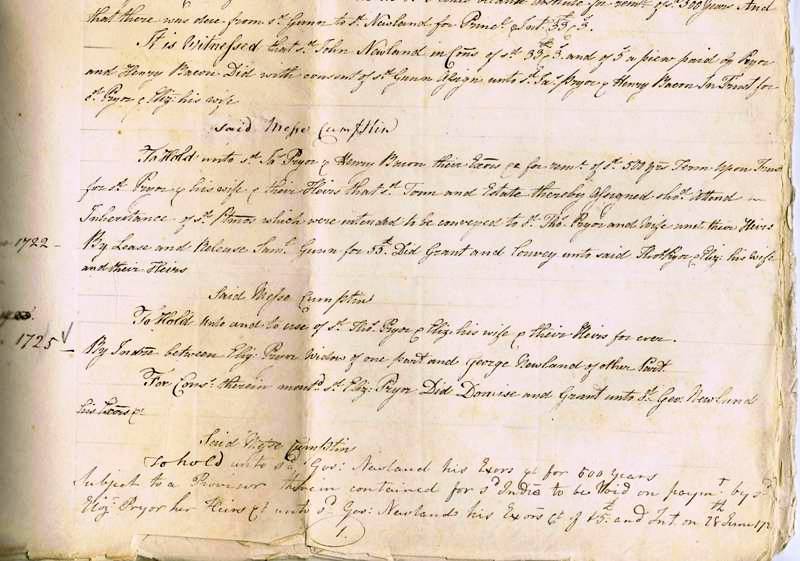 that there was due from sd. Gunn to sd. Newland for Princl. & Int. 33. 3.
It is Witnessed that sd. John Newland in Cons of sd 33. 3. and of 5s a piece paid by Pryor
and Henry Bacon Did with consent of sd Gunn Assign unto sd. Jas. Pryor & Henry Bacon In Trust for
sd. Pryor & Eliz: his wife
said Messe Cumptin
To Hold unto sd. Jas. Pryor & Henry Bacon their Exors &c for remr. of sd. 500 yrs Term Upon Trust
for sd. Pryor & his wife & their Heirs that sd. Term and Estate thereby Assigned shod. attend
Inheritance of sd. Prmes which were intended to be conveyed to sd. Tho: Pryor and Wife and their Heirs
1722 - By Lease and Release Saml. Gunn for Did Grant and Convey unto said Thos Pryor & Eliz: his Wife
and their Heirs
Said Messe Cumptin
To Hold Unto and to use of sd. Tho: Pryor & Eliz: his wife & their Heirs for ever.
1725 - By Indre between Eliz: Pryor Widow of one part and George Newland of other Part
For Cons: therein mentd. sd. Eliz: Pryor Did Demise and Grant unto sd. Geo: Newland
his Exors &c
Said Messe Cumptin
To hold unto sd. Geo: Newland his Exors &c for 500 Years
Subject to a Provisor therein contained for sd Indre to be Void on paymt. by sd
Eliz: Pryor her Heirs &c unto sd. Geo: Newland his Exors &c of and Int. on 28 June
1.